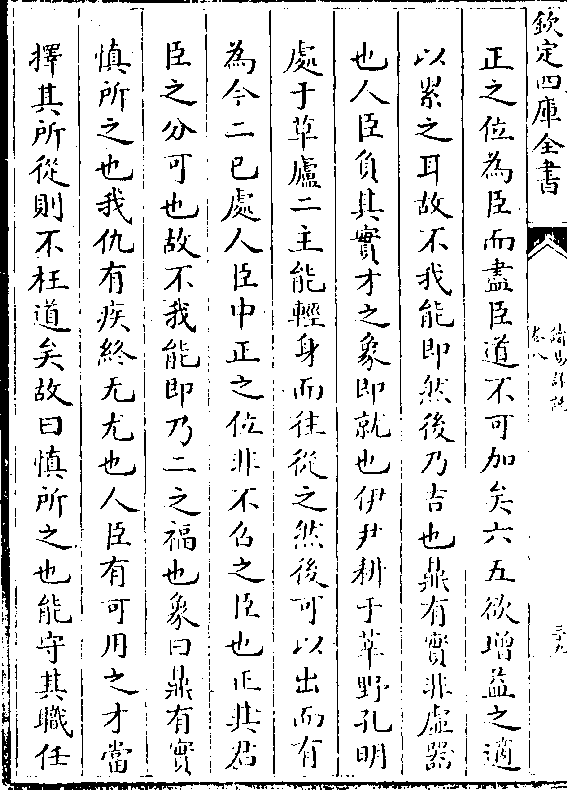 欽定四庫全書
卷八
正之位為臣而盡臣道不可加矣六五欲增益之適
以累之耳故不我能即然後乃吉也鼎有實非虛器
也人臣負其實才之象即就也伊尹耕于莘野孔明
處于草廬二主能輕身而往從之然後可以出而有
為今二已處人臣中正之位非不召之臣也正其君
臣之分可也故不我能即乃二之福也象曰鼎有實
慎所之也我仇有疾終无尤也人臣有可用之才當
擇其所從則不枉道矣故曰慎所之也能守其職任